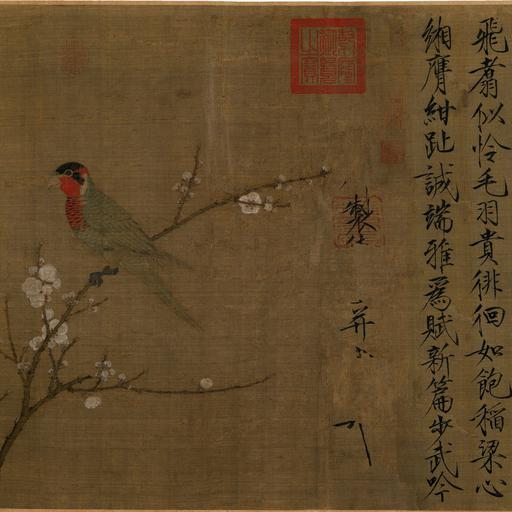 飛翥似怜毛羽貴徘徊如飽稻粱心
緗膺紺趾誠端雅爲賦新篇步武吟
製
并